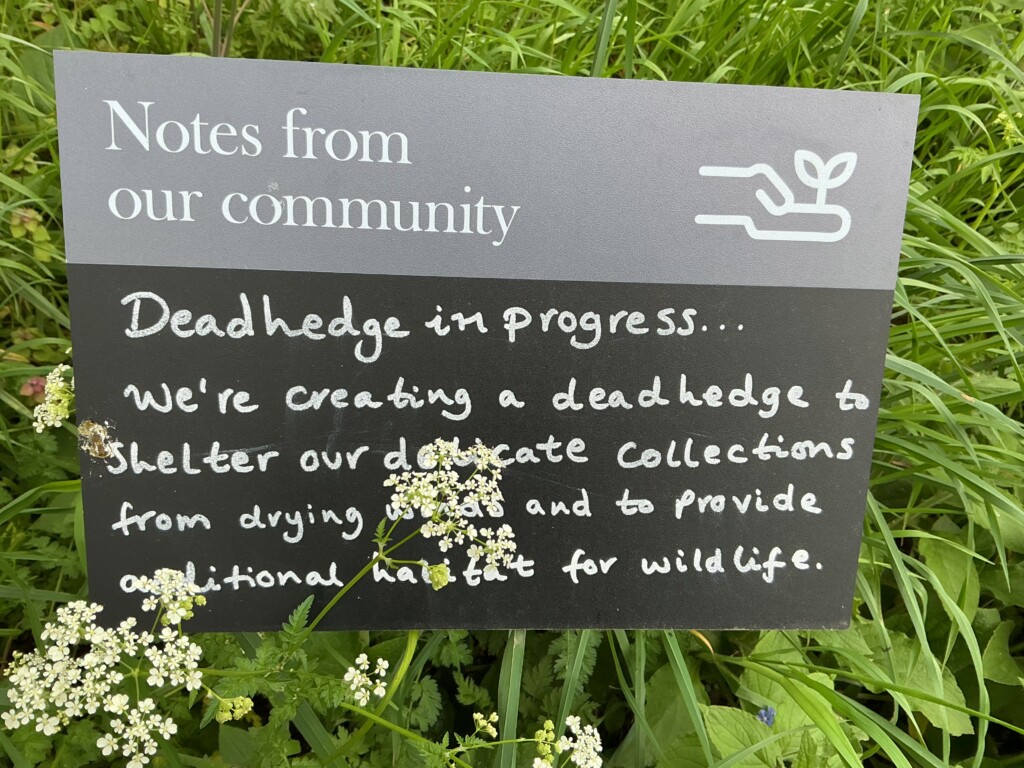 Notes from
our community
Deadhedge in progress...
We're creating a deadhedge to
shelter our delicate collections
from drying winds and to provide
additional habitat for wildlife.